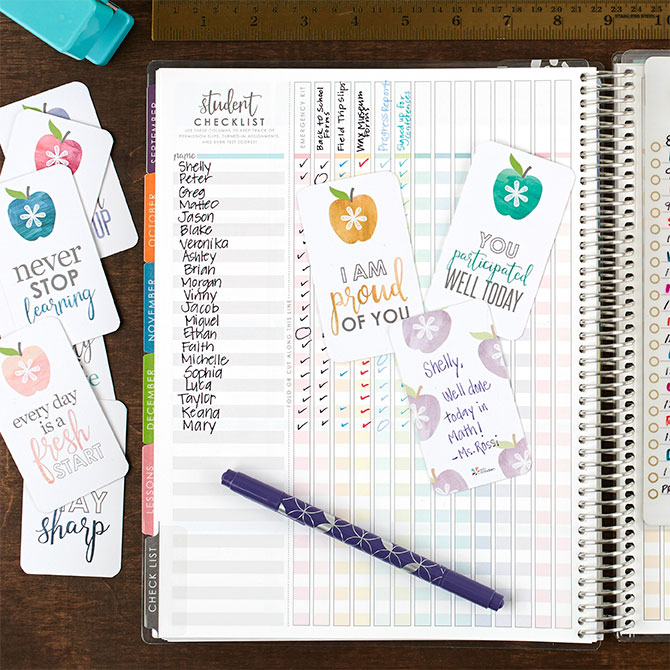 student
CHECKLIST
USE THESE COLUMNS TO KEEP TRACK OF
PERMISSION SLIPS, TURNED-IN ASSIGNMENTS,
AND EVEN TEST SCORES!
EMERGENCY KIT
Back to School
Forms
Field Trip Slips
Wax Museum
Forms
Progress Report
Signed up for
conferences
name
Shelly
Peter
Greg
Matteo
Jason
Blake
Veronika
Ashley
Brian
Morgan
Vinny
Jacob
Miguel
Ethan
Faith
Michelle
Sophia
Luca
Taylor
Keana
Mary
FOLD OR CUT ALONG THIS LINE
SEPTEMBER
OCTOBER
NOVEMBER
DECEMBER
LESSONS
CHECK LIST
never
STOP
learning
every day
is a
fresh
START
sharp
I AM
proud
OF YOU
YOU
participated
WELL TODAY
Shelly,
Well done
today in
Math!
-Ms. Rossi